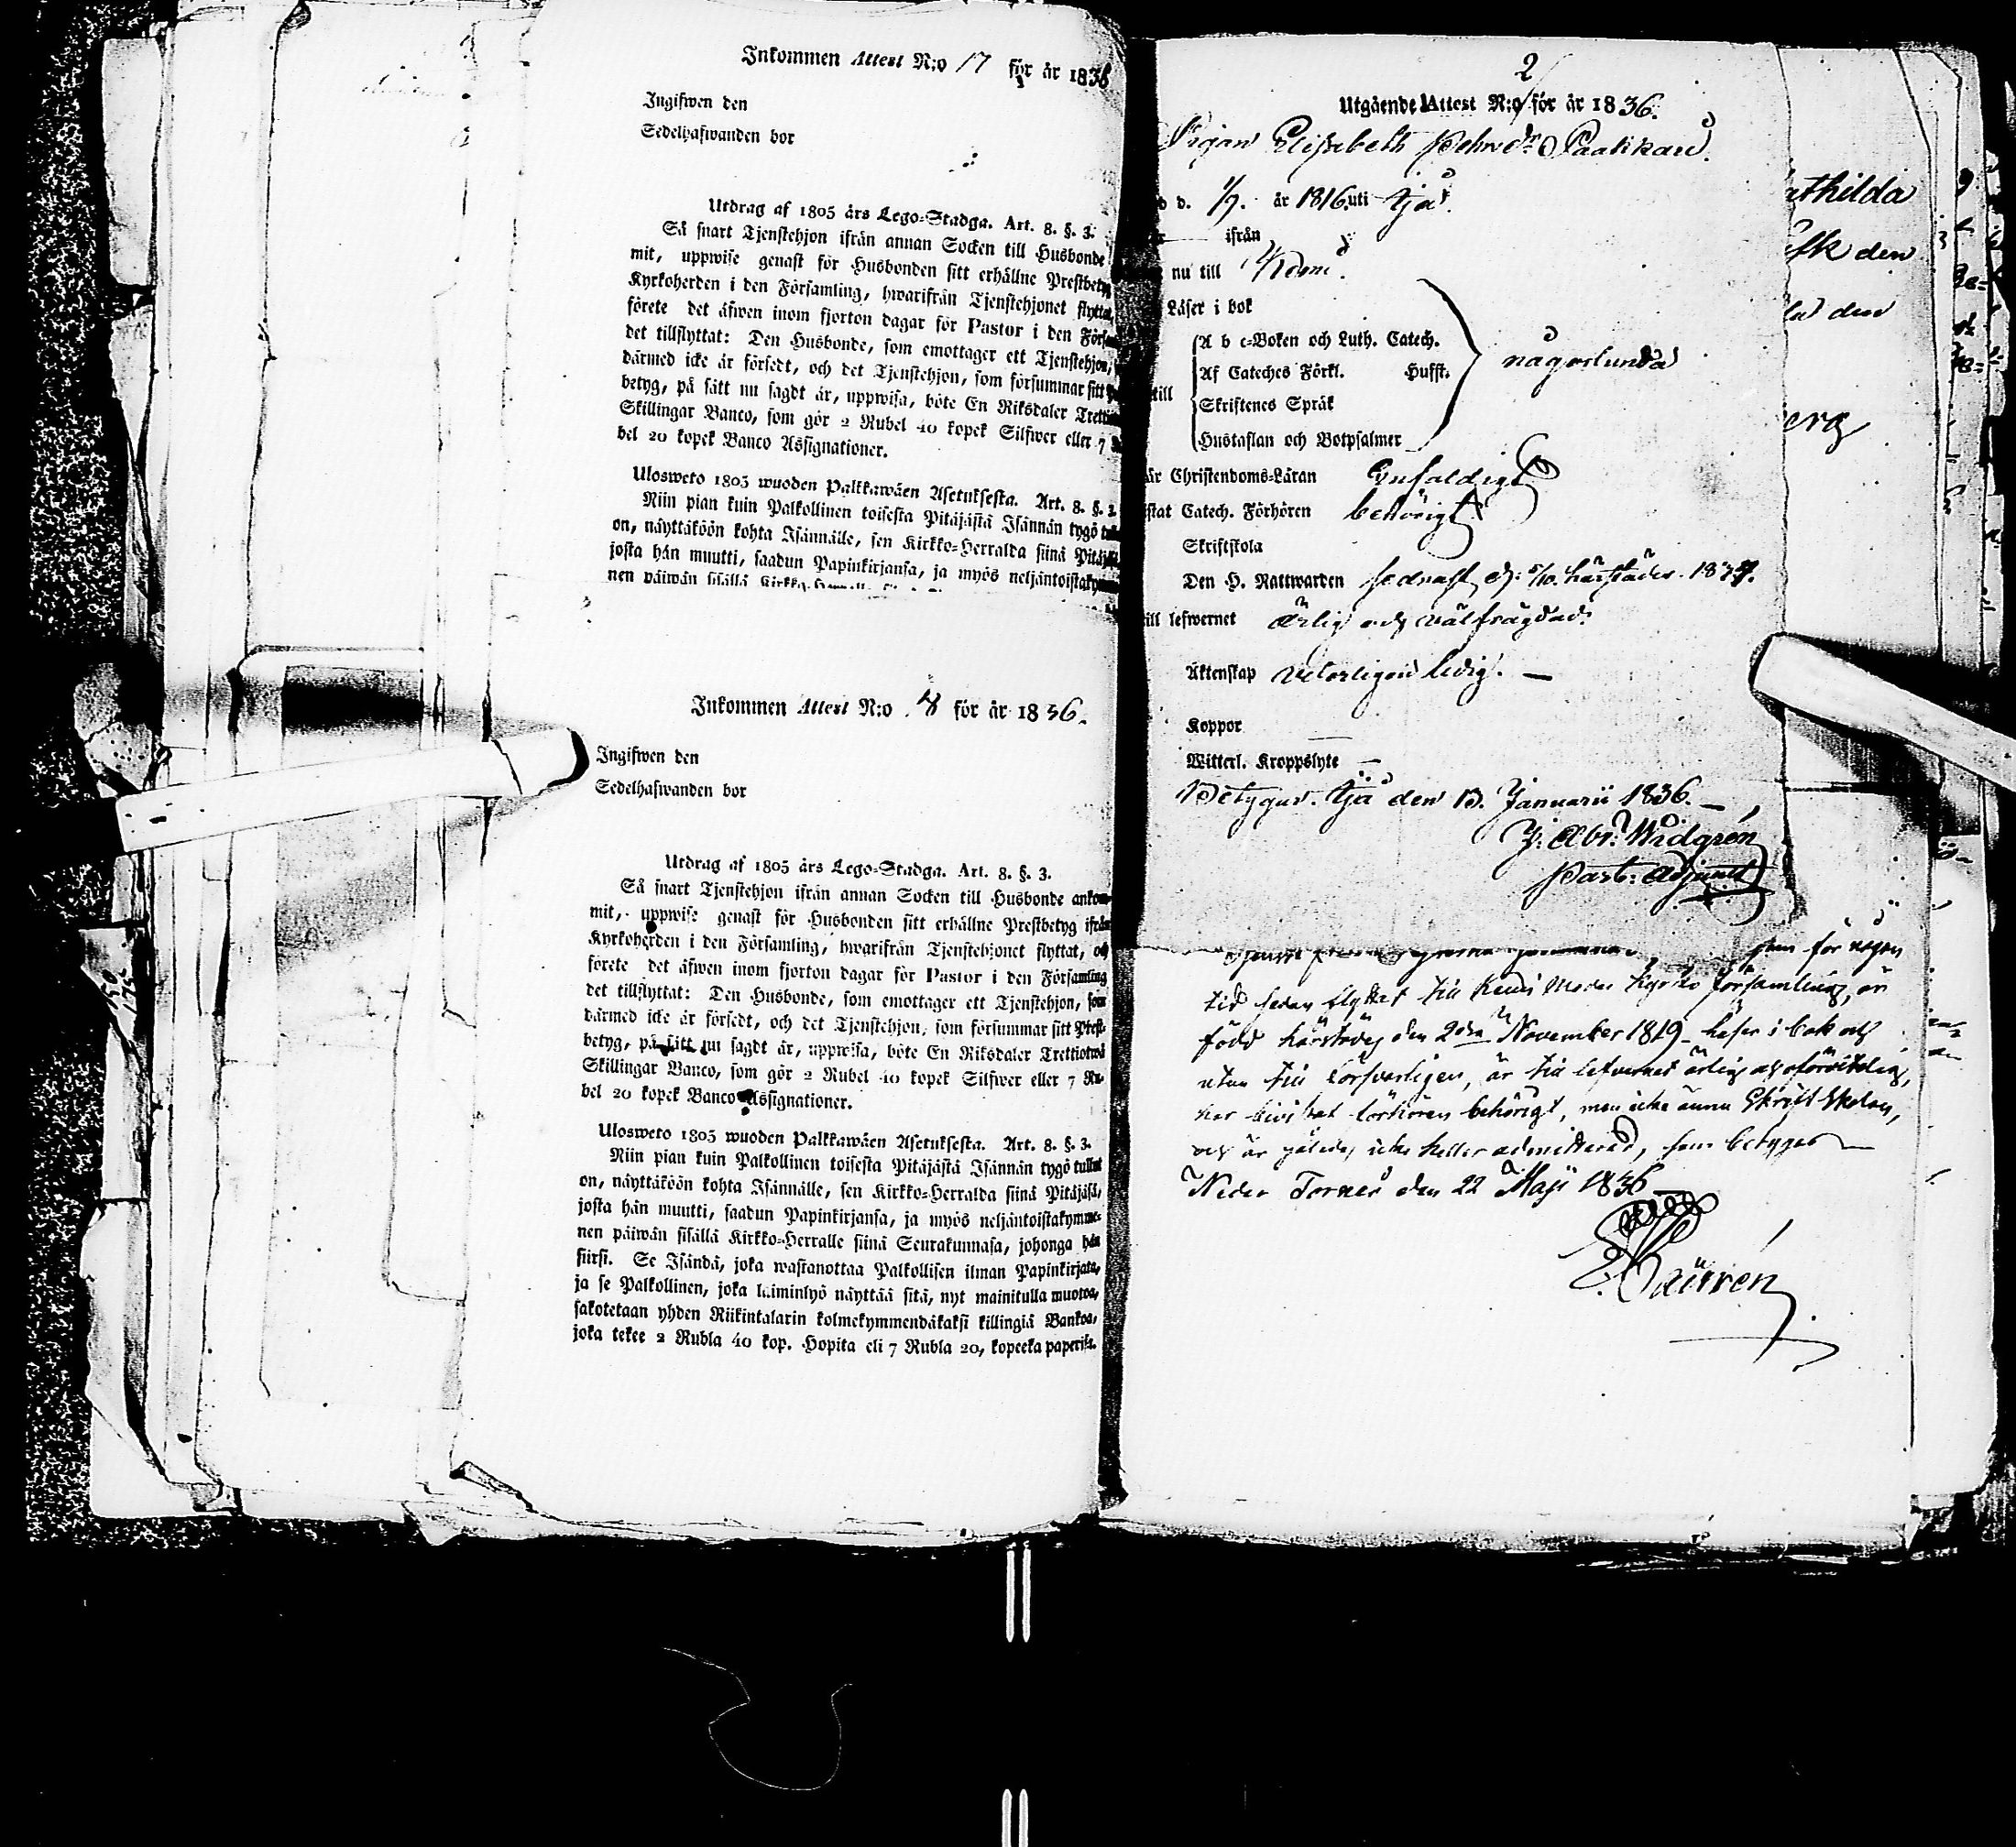 Inkommen Attest N:o 17 för år 1836
Ingifwen den
Sedelhafwanden bor
Utdrag af 1805 års Lego-Stadga. Art. 8. §. 3.
Så snart Tjenstehjon ifrån annan Socken till Husbonde
mit, uppwise genast för Husbonden sitt erhållne Prestbetyg
Kyrkoherden i den Församling, hwarifrån Tjenstehjonet flyttat,
förete det äfwen inom fjorton dagar för Pastor i den
det tillflyttat: Den Husbonde, som emottager ett Tjenstehjon,
därmed icke är försedt, och det Tjenstehjon, som försummar sitt
betyg, på sätt nu sagdt är, uppwisa, böte En Riksdaler
Skillingar Banco, som gör 2 Rubel 40 kopek Silfwer eller 7
bel 20 kopek Banco Assignationer.
Ulosweto 1805 wuoden Palkkawäen Asetuksesta. Art. 8. §. 3.
Niin pian kuin Palkollinen toisesta Pitäjästä Isännän tygö
on, näyttäköön kohta Isännälle, sen Kirkko-Herralda siinä
josta hän muutti, saadun Papinkirjansa, ja myös
nen päiwän sisällä
Inkommen Attest N:o 18 för år 1836.
Ingifwen den
Sedelhafwanden bor
Utdrag af 1805 års Lego-Stadga. Art. 8. §. 3.
Så snart Tjenstehjon ifrån annan Socken till Husbonde ankom-
mit, uppwise genast för Husbonden sitt erhållne Prestbetyg ifrån
Kyrkoherden i den Församling, hwarifrån Tjenstehjonet flyttat, och
förete det äfwen inom fjorton dagar för Pastor i den Församling
det tillflyttat: Den Husbonde, som emottager ett Tjenstehjon, som
därmed icke är försedt, och det Tjenstehjon, som försummar sitt Prest-
betyg, på sätt nu sagdt är, uppwisa, böte En Riksdaler Trettiotwå
Skillingar Banco, som gör 2 Rubel 40 kopek Silfwer eller 7 Ru-
bel 20 kopek Banco Assignationer.
Ulosweto 1805 wuoden Palkkawäen Asetuksesta. Art. 8. §. 3.
Niin pian kuin Palkollinen toisesta Pitäjästä Isännän tygö tullut
on, näyttäköön kohta Isännälle, sen Kirkko-Herralda siinä Pitäjäsä,
josta hän muutti, saadun Papinkirjansa, ja myös neljäntoistakymme-
nen päiwän sisällä Kirkko-Herralle siinä Seurakunnasa, johonga hän
siirsi. Se Isändä, joka wastanottaa Palkollisen ilman Papinkirjata,
ja se Palkollinen, joka laiminlyö näyttää sitä, nyt mainitulla muotoa,
sakotetaan yhden Riikintalarin kolmekymmendäkaksi killingiä Bankoa,
joka tekee 2 Rubla 40 kop. Hopita eli 7 Rubla 20, kopeeka paperisa.
2
Utgående Attest N:o för år 1836.
Pigan Elisabeth Paakkari.
d. 1/7. år 1816 uti Ijo.
ifrån
nu till Kemi.
Läser i bok
A b c-Boken och Luth. Catech.
Af Cateches Förkl. Husst.
någorlunda
till
Skriftenes Språk
Hustaflan och Botpsalmer
Christendoms-Läran Enfaldigt
Catech. Förhören behörigt
Skriftskola
Den H. Nattwarden sednast d. 5/10. härstädes.
lefwernet ärlig och välfrägdad.
Äktenskap veterligen ledig. —
Koppor
Witterl. Kroppslyte —
Betygar. Ijo den 13. Januarii 1836. —
J. Abr. Widgrén
Past: Adjunct
som för någon
tid sedan flyttat till Kemi Moder Kyrko församling, är
född härstädes den 2dra November 1819 läser i bok och
utan till försvarligen, är till lefvernet ärlig och oförvitelig,
har bivistat förhören behörigt, men icke ännu Skriftskolan,
och är således icke heller admitterad, som betygas
Neder Torneå den 22 Maji 1836
athilda
den
den
erg